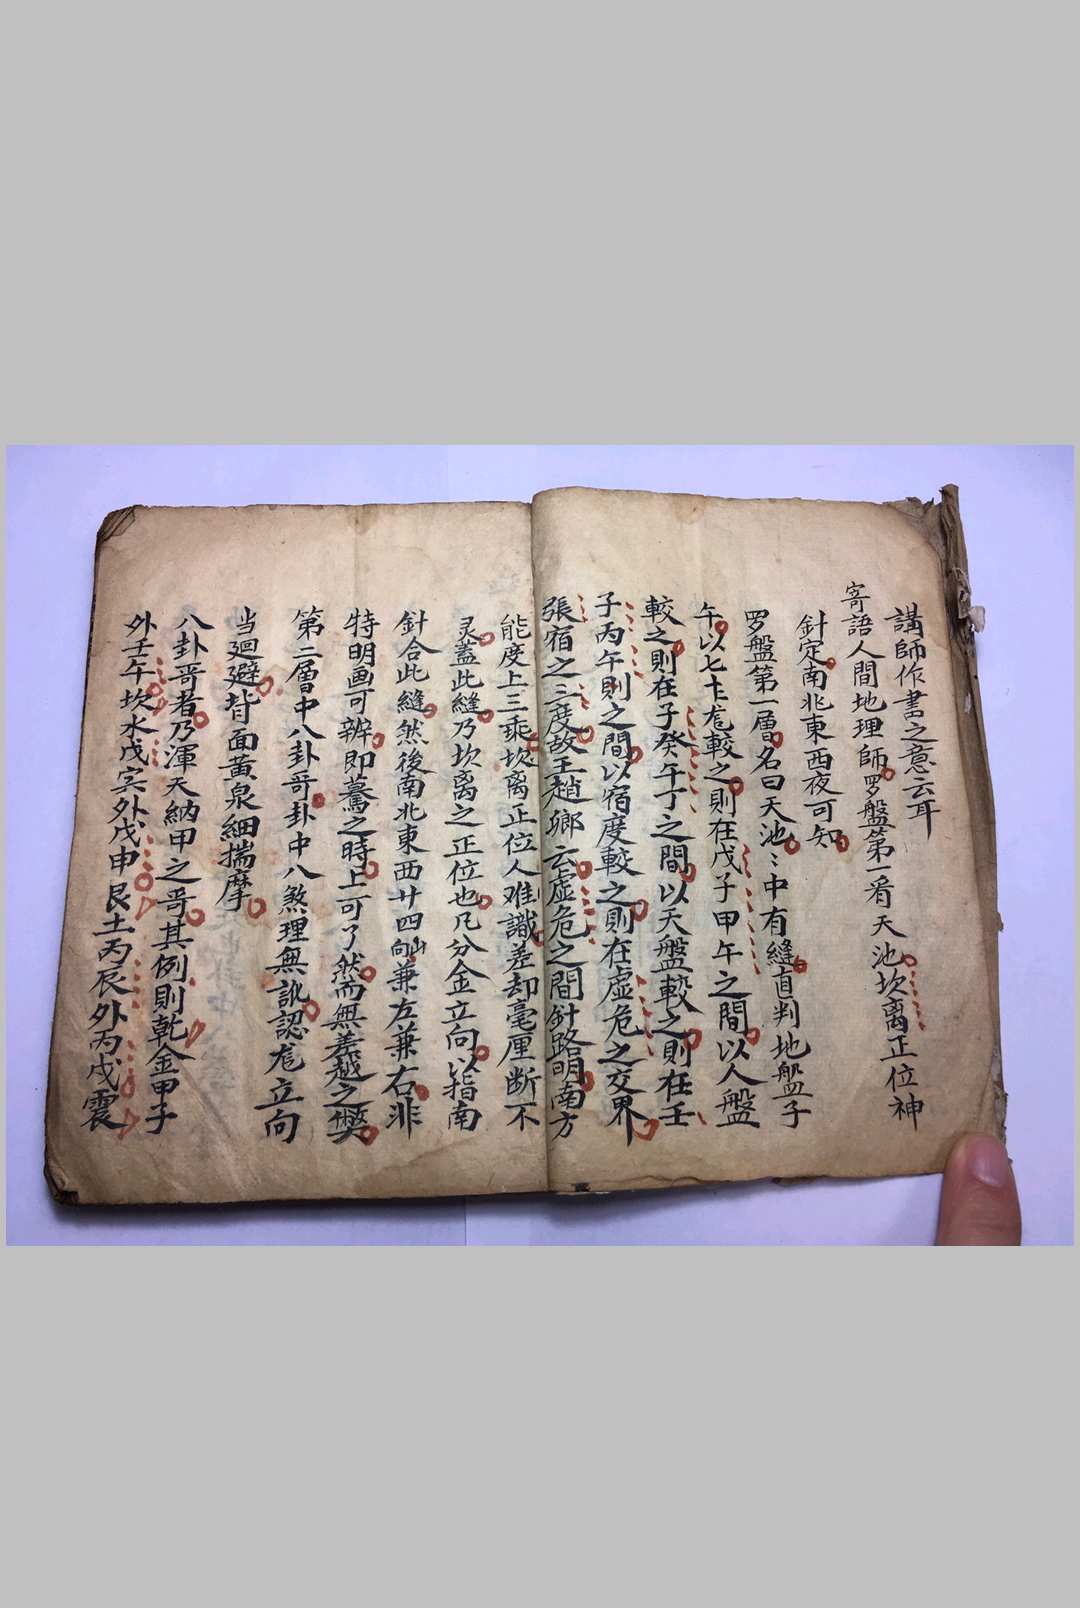 講師作書之意云耳
寄語人間地理師罗盤第一看天池坎离正位神
針定南北東西夜可知
罗盤第一層名曰天池〻中有縫直判地盤子
午以七十龙較之則在戊子甲午之間以人盤
較之則在子癸午丁之間以天盤較之則在壬
子丙午則之間以宿度較之則在虛危之交界
張宿之三度故王趙鄉云虛危之間針路明南方
能度上三乘坎离正位人难識差却毫厘断不
灵蓋此縫乃坎离之正位也凡分金立向以指南
針合此縫然後南北東西廿四山向兼左兼右非
特明画可辨即驀之時上可了然而無差越之樊
第二層中八卦哥卦中八煞理無訛認龙立向
当廻避背面黃泉細揣摩
八卦哥者乃渾天納甲之哥其例則乾金甲子
外壬午坎水戊寅外戊申艮土丙辰外丙戌震